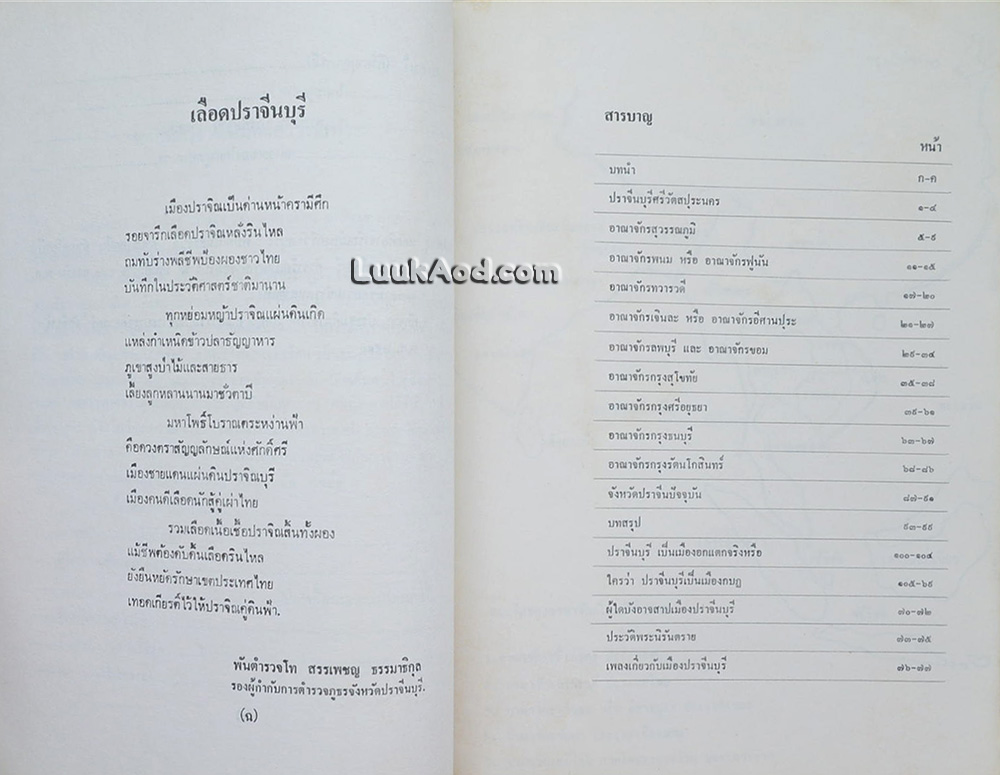 เลือดปราจีนบุรี
เมืองปราจิณเป็นด่านหน้าครามีศึก
รอยจารึกเลือดปราจิณหลั่งรินไหล
ถมทับร่างพลีชีพป้องผองชาวไทย
บันทึกในประวัติศาสตร์ชาติมานาน
ทุกหย่อมหญ้าปราจิณแผ่นดินเกิด
แหล่งกำเหนิดข้าวปลาธัญญาหาร
ภูเขาสูงป่าไม้และสายธาร
เลี้ยงลูกหลานนานมาชั่วตาปี
มหาโพธิ์โบราณตระหง่านฟ้า
คือดวงตราสัญญลักษณ์แห่งศักดิ์ศรี
เมืองชายแดนแผ่นดินปราจิณบุรี
เมืองคนดีเลือดนักสู้คู่เผ่าไทย
รวมเลือดเนื้อเชื้อปราจิณสิ้นทั้งผอง
แม้ชีพต้องดับดิ้นเลือดรินไหล
ยังยืนหยัดรักษาเขตประเทศไทย
เทอดเกียรติ์ไว้ให้ปราจิณคู่ดินฟ้า.
พันตำรวจโท สรรเพชญ ธรรมาธิกุล
รองผู้กำกับการตำรวจภูธรจังหวัดปราจีนบุรี.
(ฉ)
LuukAod.com
สารบาญ
หน้า
บทนำ ก-ค
ปราจีนบุรีศรีวัตสปุระนคร ๑-๔
อาณาจักรสุวรรณภูมิ ๕-๙
อาณาจักรพนม หรือ อาณาจักรฟูนัน ๑๑-๑๕
อาณาจักรทวารวดี ๑๗-๒๐
อาณาจักรเจินละ หรือ อาณาจักรอีศานปุระ ๒๑-๒๗
อาณาจักรลพบุรี และ อาณาจักรขอม ๒๙-๓๔
อาณาจักรกรุงสุโขทัย ๓๕-๓๘
อาณาจักรกรุงศรีอยุธยา ๓๙-๖๑
อาณาจักรกรุงธนบุรี ๖๓-๖๗
อาณาจักรกรุงรัตนโกสินทร์ ๖๘-๘๖
จังหวัดปราจีนปัจจุบัน ๘๗-๙๑
บทสรุป ๙๓-๙๙
ปราจีนบุรี เป็นเมืองอกแตกจริงหรือ ๑๐๐-๑๐๔
ใครว่า ปราจีนบุรีเป็นเมืองกบฏ ๑๐๕-๖๙
ผู้ใดบังอาจสาปเมืองปราจีนบุรี ๗๐-๗๒
ประวัติพระนิรันตราย ๗๓-๗๕
เพลงเกี่ยวกับเมืองปราจีนบุรี ๗๖-๗๗